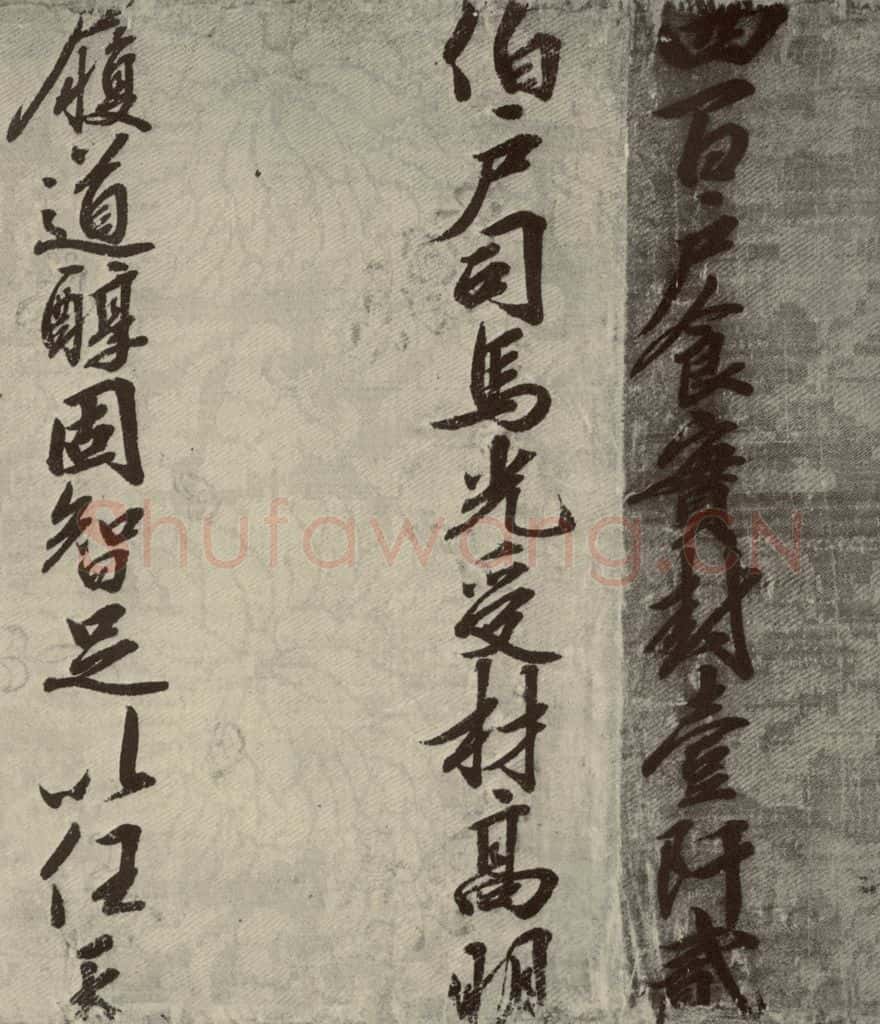 四百户食實封壹阡貳
伯户司馬光受材高明
履道醇固智足以任天
Shufawang.CN